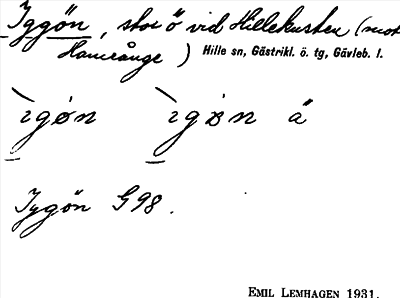 Iggön, stor ö vid Hillekusten (mot
Hamrånge) Hille sn, Gästrikl. ö. tg, Gävleb. l.
ìgøn ìgøn å
Iggön G98.
EMIL LEMHAGEN 1931.